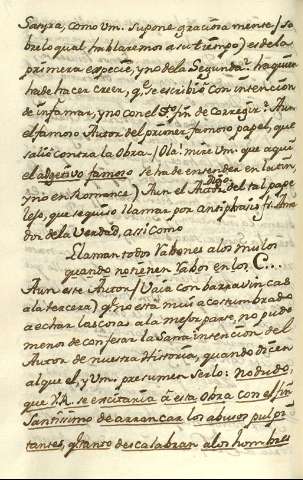 Satyra, como Vm. supone graciosamente (so
bre lo qual hablaremos a su tiempo) es de la
primera especie, y no de la Segunda? ha quien
ha de hacer creer, q.e se escribió con intención
de infamar, y no con el S.to fin de corregir? Aun
el famoso Autor del primer famoso papel, que
salió contra la Obra (Ola! mire Vm. que aqui
el adgetivo famoso se ha de entender en latin,
y no en Romance) Aun el Autor del tal pape
lejo, que se quiso llamar por antiphrasis el Ama
dor de la Verdad, assi como
Llaman todos rabones a los mulos
quando no tienen rabos en los C...
Aun este Autor (Vaia con barra vin cas
a la tercera) q.e no está mui acostumbrado
a echar las cosas a la mejor parte, no pudo
menos de confesar la sana intencion del
Autor de nuestra Historia, quando dicen
al que el, y Vm. presumen serlo: no dudo,
que V.R. se excitaria á esta Obra con el fin
Santissimo de arrancar los abusos pulpi
tantes, q.e tanto descalabran a los hombres